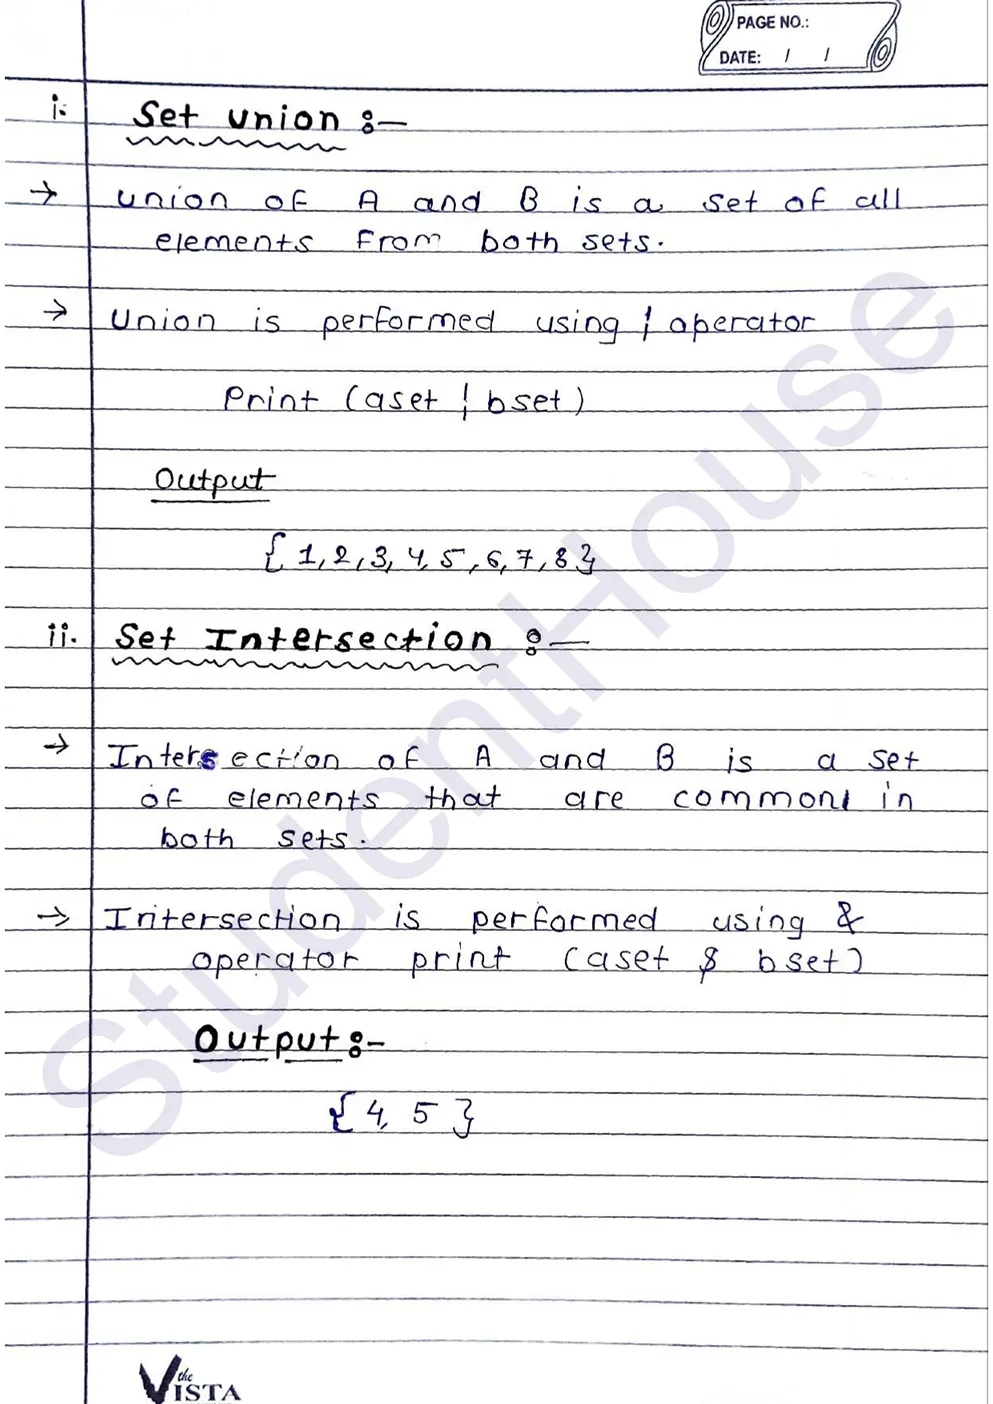 PAGE NO.:
DATE: / /
i. Set union :-
→ union of A and B is a set of all
elements from both sets.
→ Union is performed using ¦ operator
Print (aset ¦ bset)
Output
{1,2,3,4,5,6,7,8}
ii. Set Intersection :-
→ Intersection of A and B is a set
of elements that are common in
both sets.
→ Intersection is performed using &
operator print (aset & bset)
Output :-
{4, 5}
StudentHouse
the VISTA